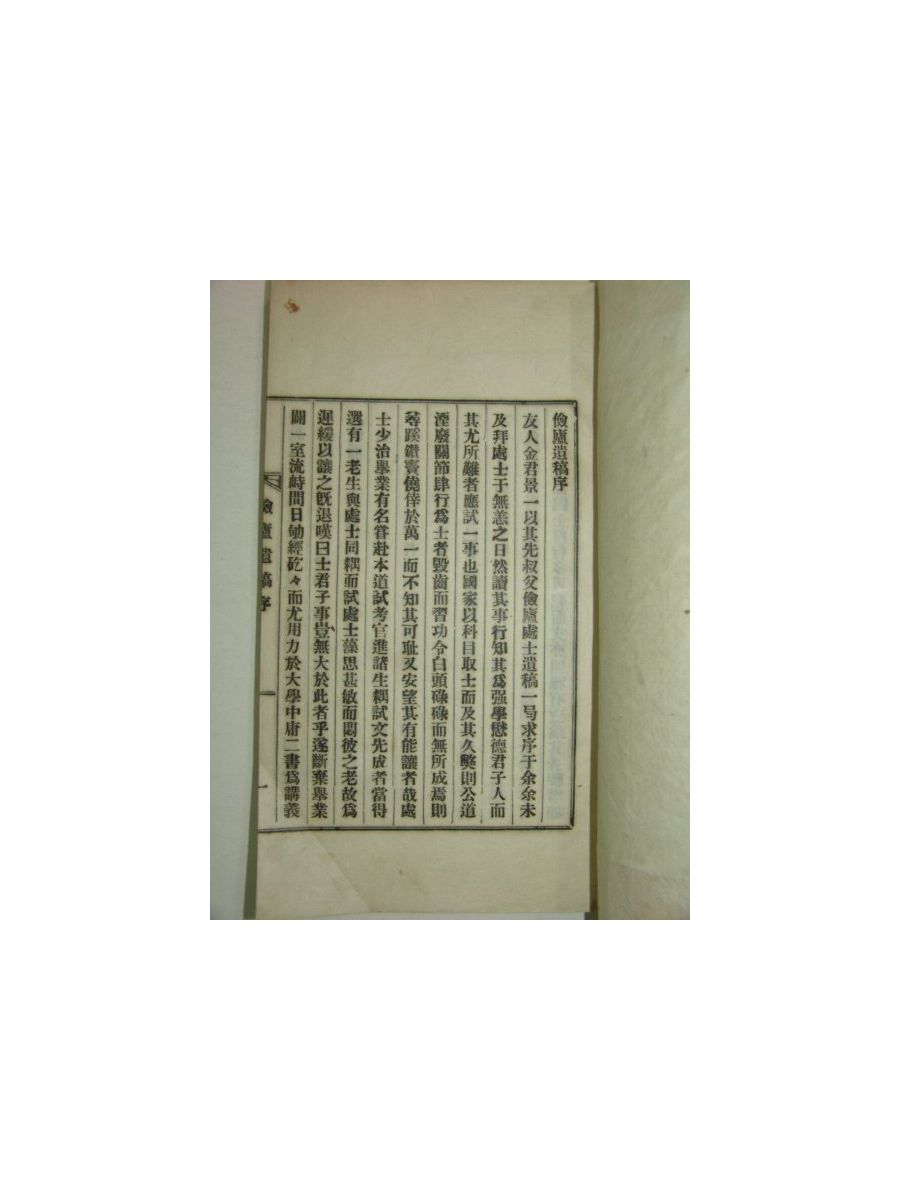 儉廬遺稿序
友人金君景一以其先叔父儉廬處士遺稿一局求序于余余未
及拜處士于無恙之日然讀其事行知其爲强學懋德君子人而
其尤所難者應試一事也國家以科目取士而及其久獘則公道
湮廢關節肆行爲士者毀齒而習功令白頭碌碌而無所成焉則
尋蹊鑽竇僥倖於萬一而不知其可耻又安望其有能讓者哉處
士少治擧業有名甞赴本道試考官進諸生耦試文先成者當得
選有一老生與處士同耦而試處士藻思甚敏而悶彼之老故爲
遲緩以讓之旣退嘆曰士君子事豈無大於此者乎遂斷棄擧業
闢一室流峙間日劬經矻々而尤用力於大學中庸二書爲講義
儉廬遺稿序
一